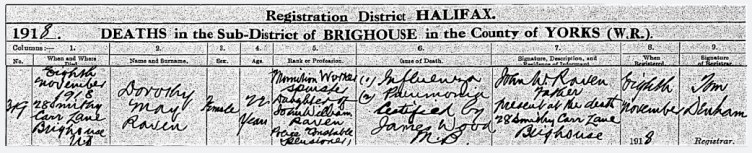 Registration District HALIFAX.
1918. DEATHS in the Sub-District of BRIGHOUSE in the County of YORKS (W.R.).
Columns:— 1. 2. 3. 4. 5. 6. 7. 8. 9.
No. When and Where Died. Name and Surname. Sex. Age. Rank or Profession. Cause of Death. Signature, Description, and Residence of Informant. When Registered. Signature of Registrar.
349
Eighth
November
1918
28 Smithy
Carr Lane
Brighouse
UD
Dorothy
May
Raven
Female
22
Years
Munition Worker
Spinster
Daughter of
John William
Raven
Police Constable
(Pensioner)
(1) Influenza
(2) Pneumonia
Certified by
James Wood
M.B.
John W Raven
Father
Present at the death
28 Smithy Carr Lane
Brighouse
Eighth
November
1918
Tom
Denham
Registrar.